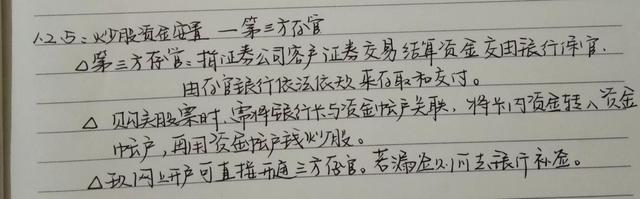 1.2.5：炒股资金安置 — 第三方存官
△第三方存官：指证券公司客户证券交易结算资金交由银行保官.
由存官银行依法依规来存取和交付。
△ 购买股票时,需将银行卡与资金帐户关联,将卡内资金转入资金
帐户,再用资金帐户钱炒股。
△现网上开户可直接开通三方存官。若漏签则可去银行补签。